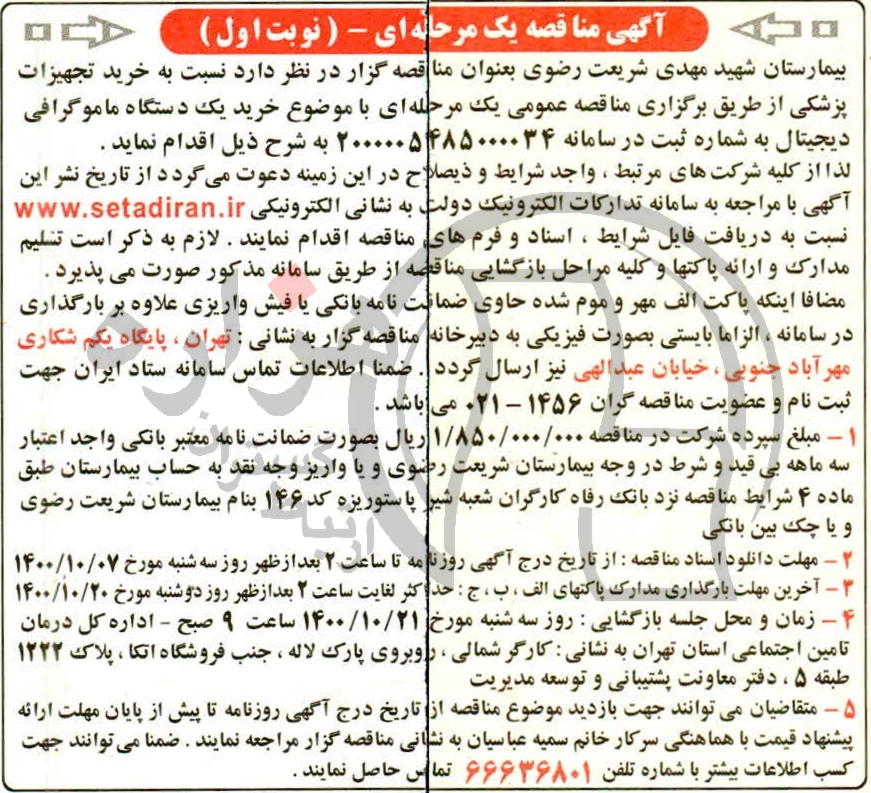 آگهی مناقصه یک مرحله ای - ( نوبت اول )
بیمارستان شهید مهدی شریعت رضوی بعنوان مناقصه گزار در نظر دارد نسبت به خرید تجهیزات
پزشکی از طریق برگزاری مناقصه عمومی یک مرحله ای با موضوع خرید یک دستگاه ماموگرافی
دیجیتال به شماره ثبت در سامانه ۲۰۰۰۰۰۵۴۸۵۰۰۰۰۳۴ به شرح ذیل اقدام نماید .
لذا از کلیه شرکت های مرتبط ، واجد شرایط و ذیصلاح در این زمینه دعوت می گردد از تاریخ نشر این
آگهی با مراجعه به سامانه تدارکات الکترونیک دولت به نشانی الکترونیکی www.setadiran.ir
نسبت به دریافت فایل شرایط ، اسناد و فرم های مناقصه اقدام نمایند . لازم به ذکر است تسلیم
مدارک و ارائه پاکتها و کلیه مراحل بازگشایی مناقصه از طریق سامانه مذکور صورت می پذیرد .
مضافا اینکه پاکت الف مهر و موم شده حاوی ضمانت نامه بانکی یا فیش واریزی علاوه بر بارگذاری
در سامانه ، الزاما بایستی بصورت فیزیکی به دبیرخانه مناقصه گزار به نشانی : تهران ، پایگاه یکم شکاری
مهرآباد جنوبی ، خیابان عبدالهی نیز ارسال گردد . ضمنا اطلاعات تماس سامانه ستاد ایران جهت
ثبت نام و عضویت مناقصه گران ۱۴۵۶ - ۰۲۱ می باشد .
۱ - مبلغ سپرده شرکت در مناقصه ۱/۸۵۰/۰۰۰/۰۰۰ ریال بصورت ضمانت نامه معتبر بانکی واجد اعتبار
سه ماهه بی قید و شرط در وجه بیمارستان شریعت رضوی و یا واریز وجه نقد به حساب بیمارستان طبق
ماده ۴ شرایط مناقصه نزد بانک رفاه کارگران شعبه شیر پاستوریزه کد ۱۴۶ بنام بیمارستان شریعت رضوی
و یا چک بین بانکی
۲ - مهلت دانلود اسناد مناقصه : از تاریخ درج آگهی روزنامه تا ساعت ۲ بعدازظهر روز سه شنبه مورخ ۱۴۰۰/۱۰/۰۷
۳ - آخرین مهلت بارگذاری مدارک پاکتهای الف ، ب ، ج : حداکثر لغایت ساعت ۲ بعدازظهر روز دوشنبه مورخ ۱۴۰۰/۱۰/۲۰
۴ - زمان و محل جلسه بازگشایی : روز سه شنبه مورخ ۱۴۰۰/۱۰/۲۱ ساعت ۹ صبح - اداره کل درمان
تامین اجتماعی استان تهران به نشانی : کارگر شمالی ، روبروی پارک لاله ، جنب فروشگاه اتکا ، پلاک ۱۲۲۲
طبقه ۵ ، دفتر معاونت پشتیبانی و توسعه مدیریت
۵ - متقاضیان می توانند جهت بازدید موضوع مناقصه از تاریخ درج آگهی روزنامه تا پیش از پایان مهلت ارائه
پیشنهاد قیمت با هماهنگی سرکار خانم سمیه عباسیان به نشانی مناقصه گزار مراجعه نمایند . ضمنا می توانند جهت
کسب اطلاعات بیشتر با شماره تلفن ۶۶۶۳۶۸۰۱ تماس حاصل نمایند .